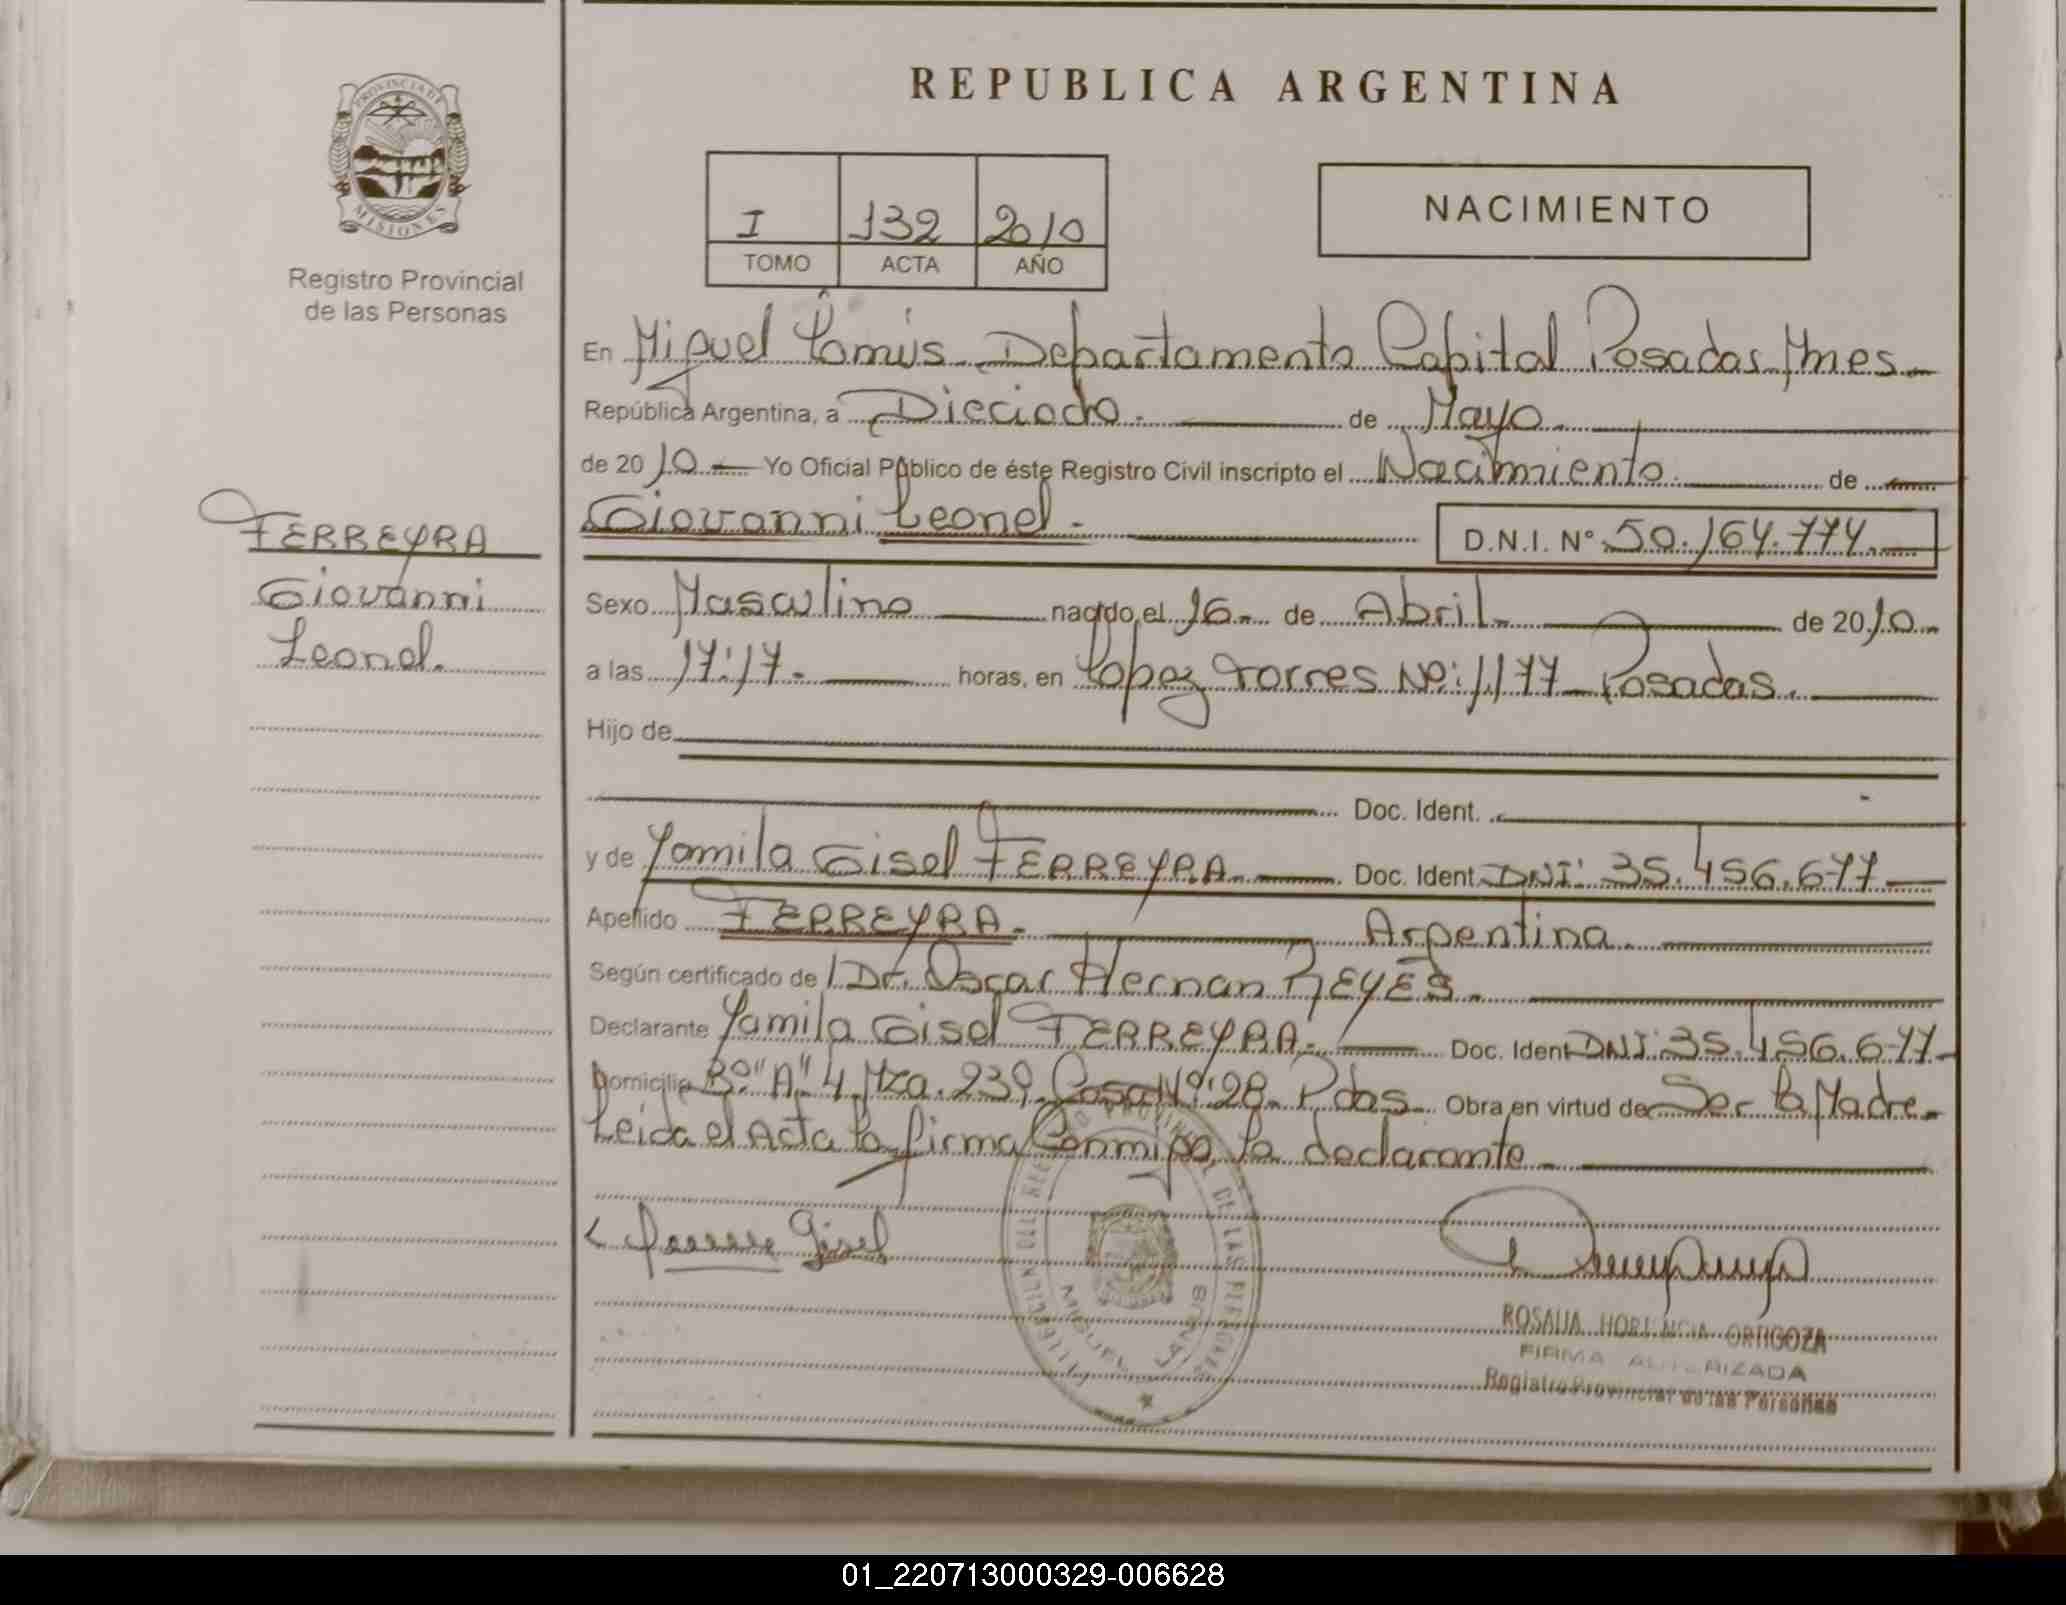 PROVINCIA DE
MISIONES
Registro Provincial
de las Personas
REPUBLICA ARGENTINA
I 132 2010
TOMO ACTA AÑO
NACIMIENTO
En Miguel Lanús Departamento Capital Posadas Mnes
República Argentina, a Dieciocho. de Mayo.
de 2010 Yo Oficial Público de éste Registro Civil inscripto el Nacimiento. de
Giovanni Leonel. D.N.I. Nº 50.164.774.
FERREYRA
Giovanni
Leonel.
Sexo Masculino nacido el 16 de Abril. de 2010
a las 17:17. horas, en Lopez Torres Nº: 1177 Posadas.
Hijo de
Doc. Ident.
y de Yamila Gisel FERREYRA. Doc. Ident. DNI: 35.456.677
Apellido FERREYRA. Argentina.
Según certificado de Dr. Oscar Hernan REYES.
Declarante Yamila Gisel FERREYRA. Doc. Ident. DNI: 35.456.677
Domicilio Bº "A" 4 Mza. 239 Casa Nº: 28. Pdas. Obra en virtud de Ser la Madre.
Leida el Acta la firma Conmigo, la declarante
Gisel
DE LAS PERSONAS
MIGUEL LANUS
ROSALIA HORTENCIA ORTIGOZA
FIRMA AUTORIZADA
Registro Provincial de las Personas
01_220713000329-006628